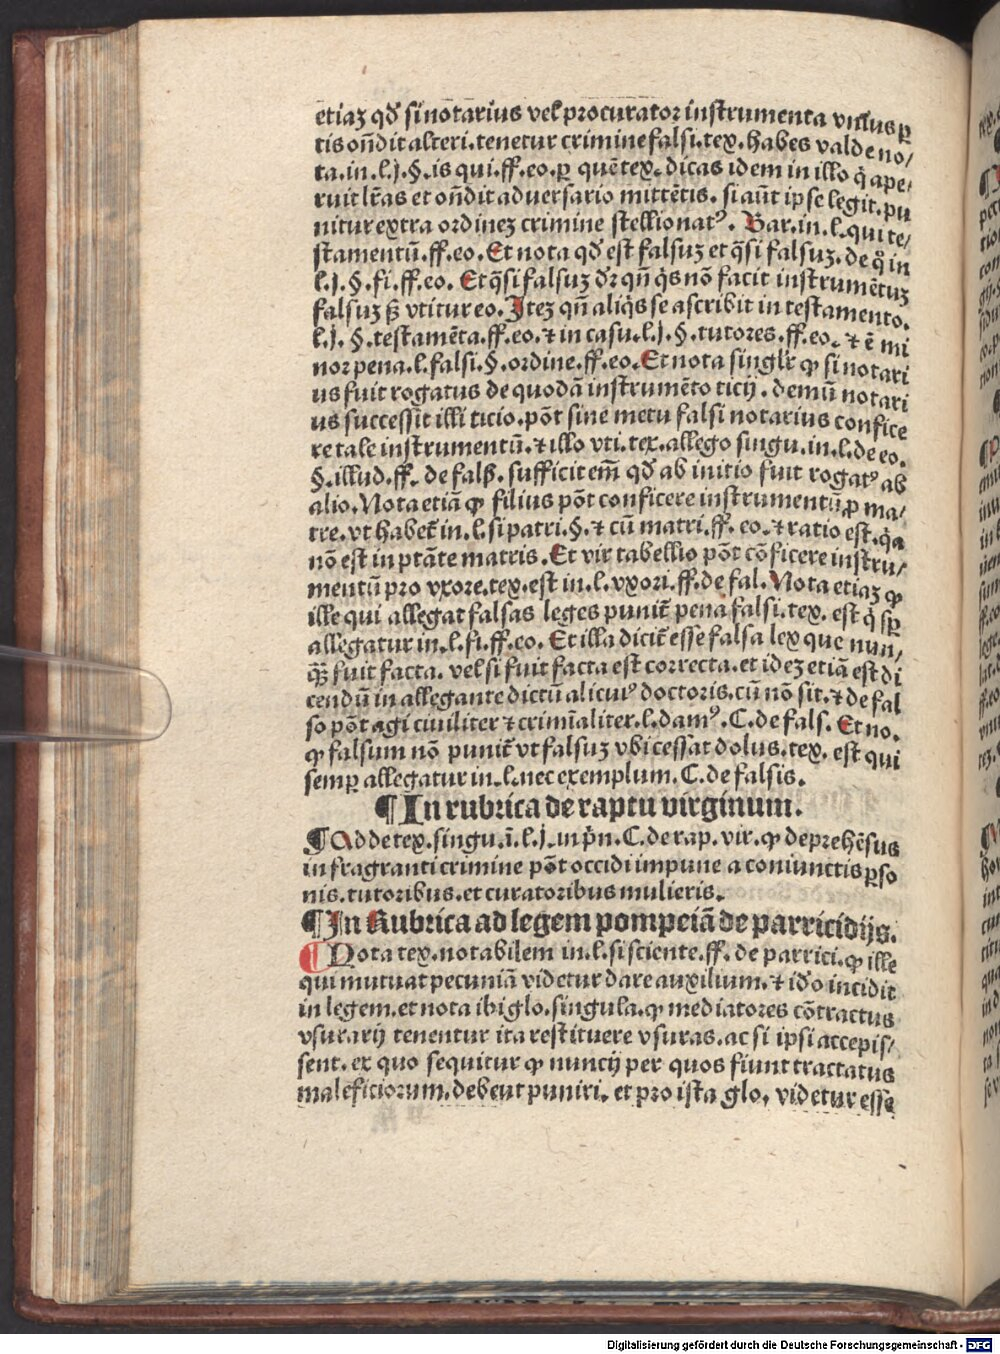 etiaꝫ qđ si notarius vel procurator instrumenta vnius ꝑ
tis oñdit alteri. tenetur crimine falsi. tex. habes valde no/
ta. in. l. j. §. is qui. ff. eo. ꝑ quē tex. dicas idem in illo q̇ ape/
ruit lr̃as et oñdit aduersario mittētis. si aūt ipse legit. pu
nitur extra ordineꝫ crimine stellionatꝰ. Bar. in. l. qui te/
stamentū. ff. eo. Et nota qđ est falsuꝫ et q̄si falsuꝫ. de q̊ in
l. j. §. fi. ff. eo. Et q̄si falsuꝫ dr̄ qn̄ q̇s nō facit instrumētuꝫ
falsuꝫ sꝫ vtitur eo. Iteꝫ qn̄ aliq̇s se ascribit in testamento.
l. j. §. testamēta. ff. eo. ⁊ in casu. l. j. §. tutores. ff. eo. ⁊ ē mi
nor pena. l. falsi. §. ordine. ff. eo. Et nota singlr̄ ꝙ si notari
us fuit rogatus de quodā instrumēto ticij. demū notari
us successit illi ticio. pōt sine metu falsi notarius confice
re tale instrumentū. ⁊ illo vti. tex. allego singu. in. l. de eo.
§. illud. ff. de falß. sufficit em̄ qđ ab initio fuit rogatꝰ ab
alio. Nota etiā ꝙ filius pōt conficere instrumentū ꝓ ma/
tre. vt habet̄ in. l. si patri. §. ⁊ cū matri. ff. eo. ⁊ ratio est. q̇a
nō est in ptāte matris. Et vir tabellio pōt cōficere instru/
mentū pro vxore. tex. est in. l. vxori. ff. de fal. Nota etiaꝫ ꝙ
ille qui allegat falsas leges punit̄ pena falsi. tex. est q̇ sꝑ
allegatur in. l. fi. ff. eo. Et illa dicit̄ esse falsa lex que nun/
q̄ꝫ fuit facta. vel si fuit facta est correcta. et ideꝫ etiā est di
cendū in allegante dictū alicuiꝰ doctoris. cū nō sit. ⁊ de fal
so pōt agi ciuiliter ⁊ crimīaliter. l. damꝰ. C. de fals. Et no.
ꝙ falsum nō punit̄ vt falsuꝫ vbi cessat dolus. tex. est qui
semꝑ allegatur in. l. nec exemplum. C. de falsis.
¶ In rubrica de raptu virginum.
¶ Adde tex. singu. ī. l. j. in pñ. C. de rap. vir. ꝙ deprehēsus
in fragranti crimine pōt occidi impune a coniunctis ꝑso
nis. tutoribus. et curatoribus mulieris.
¶ In Rubrica ad legem pompeiā de parricidijs.
¶ Nota tex. notabilem in. l. si sciente. ff. de parrici. ꝙ ille
qui mutuat pecuniā videtur dare auxilium. ⁊ iđo incidit
in legem. et nota ibi glo. singula. ꝙ mediatores cōtractus
vsurarij tenentur ita restituere vsuras. ac si ipsi accepis/
sent. ex quo sequitur ꝙ nuncij per quos fiunt tractatus
maleficiorum. debeut puniri. et pro ista glo. videtur esse
Digitalisierung gefördert durch die Deutsche Forschungsgemeinschaft - DFG